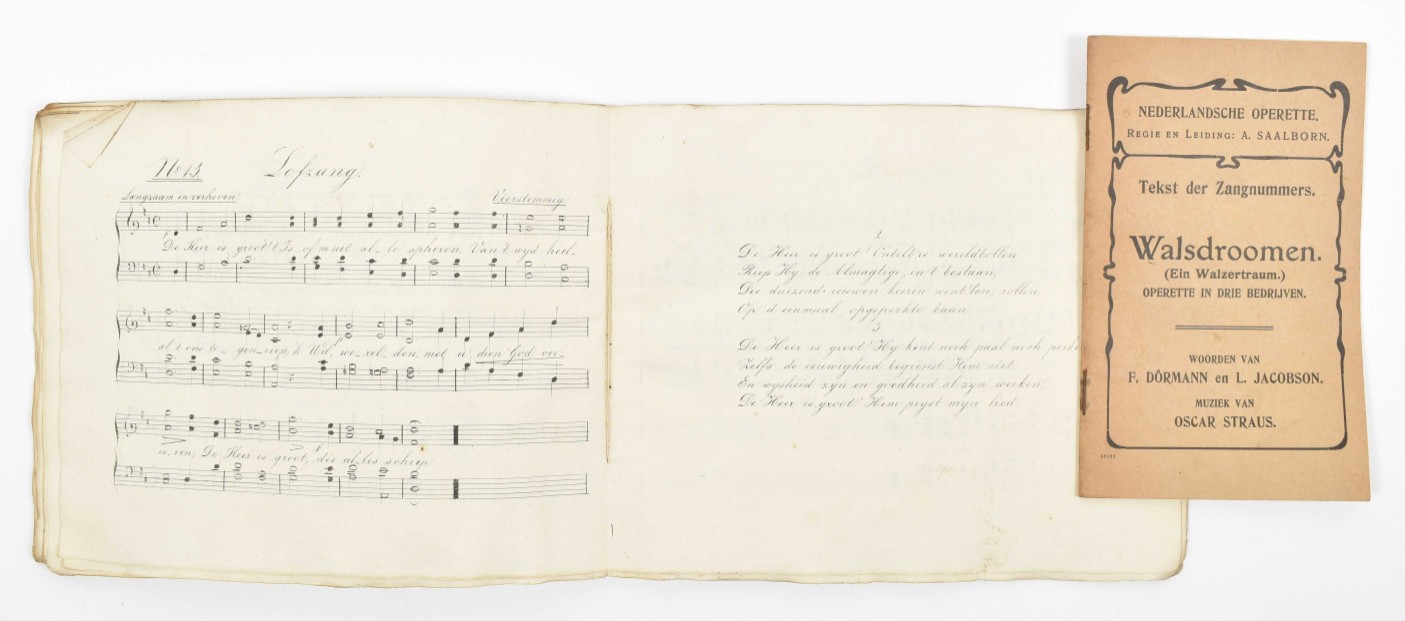 No 13. Lofzang.
Langzaam en verheven Vierstemmig.
De Heer is groot! 't Is of m' net al- le spheren, Van 't wyd heil-
al t' ons te- gen-riep; k Wil, we-rel-den, met u dien God ver-
ee-ren, De Heer is groot, die al-les schiep.
2
De Heer is groot! Ontelbre wereldbollen
Riep Hy, de Almagtige, in 't bestaan,
Die duizend eeuwen keeren went'len, rollen,
Op d' eenmaal opgeperkte baan.
3
De Heer is groot! Hy kent noch paal noch perken
Zelfs de eeuwigheid begrenst Hem niet.
En wysheid zyn en goedheid al zyn werken,
De Heer is groot! Hem pryst myn lied.
NEDERLANDSCHE OPERETTE.
REGIE EN LEIDING: A. SAALBORN.
Tekst der Zangnummers.
Walsdroomen.
(Ein Walzertraum.)
OPERETTE IN DRIE BEDRIJVEN.
WOORDEN VAN
F. DÖRMANN en L. JACOBSON.
MUZIEK VAN
OSCAR STRAUS.